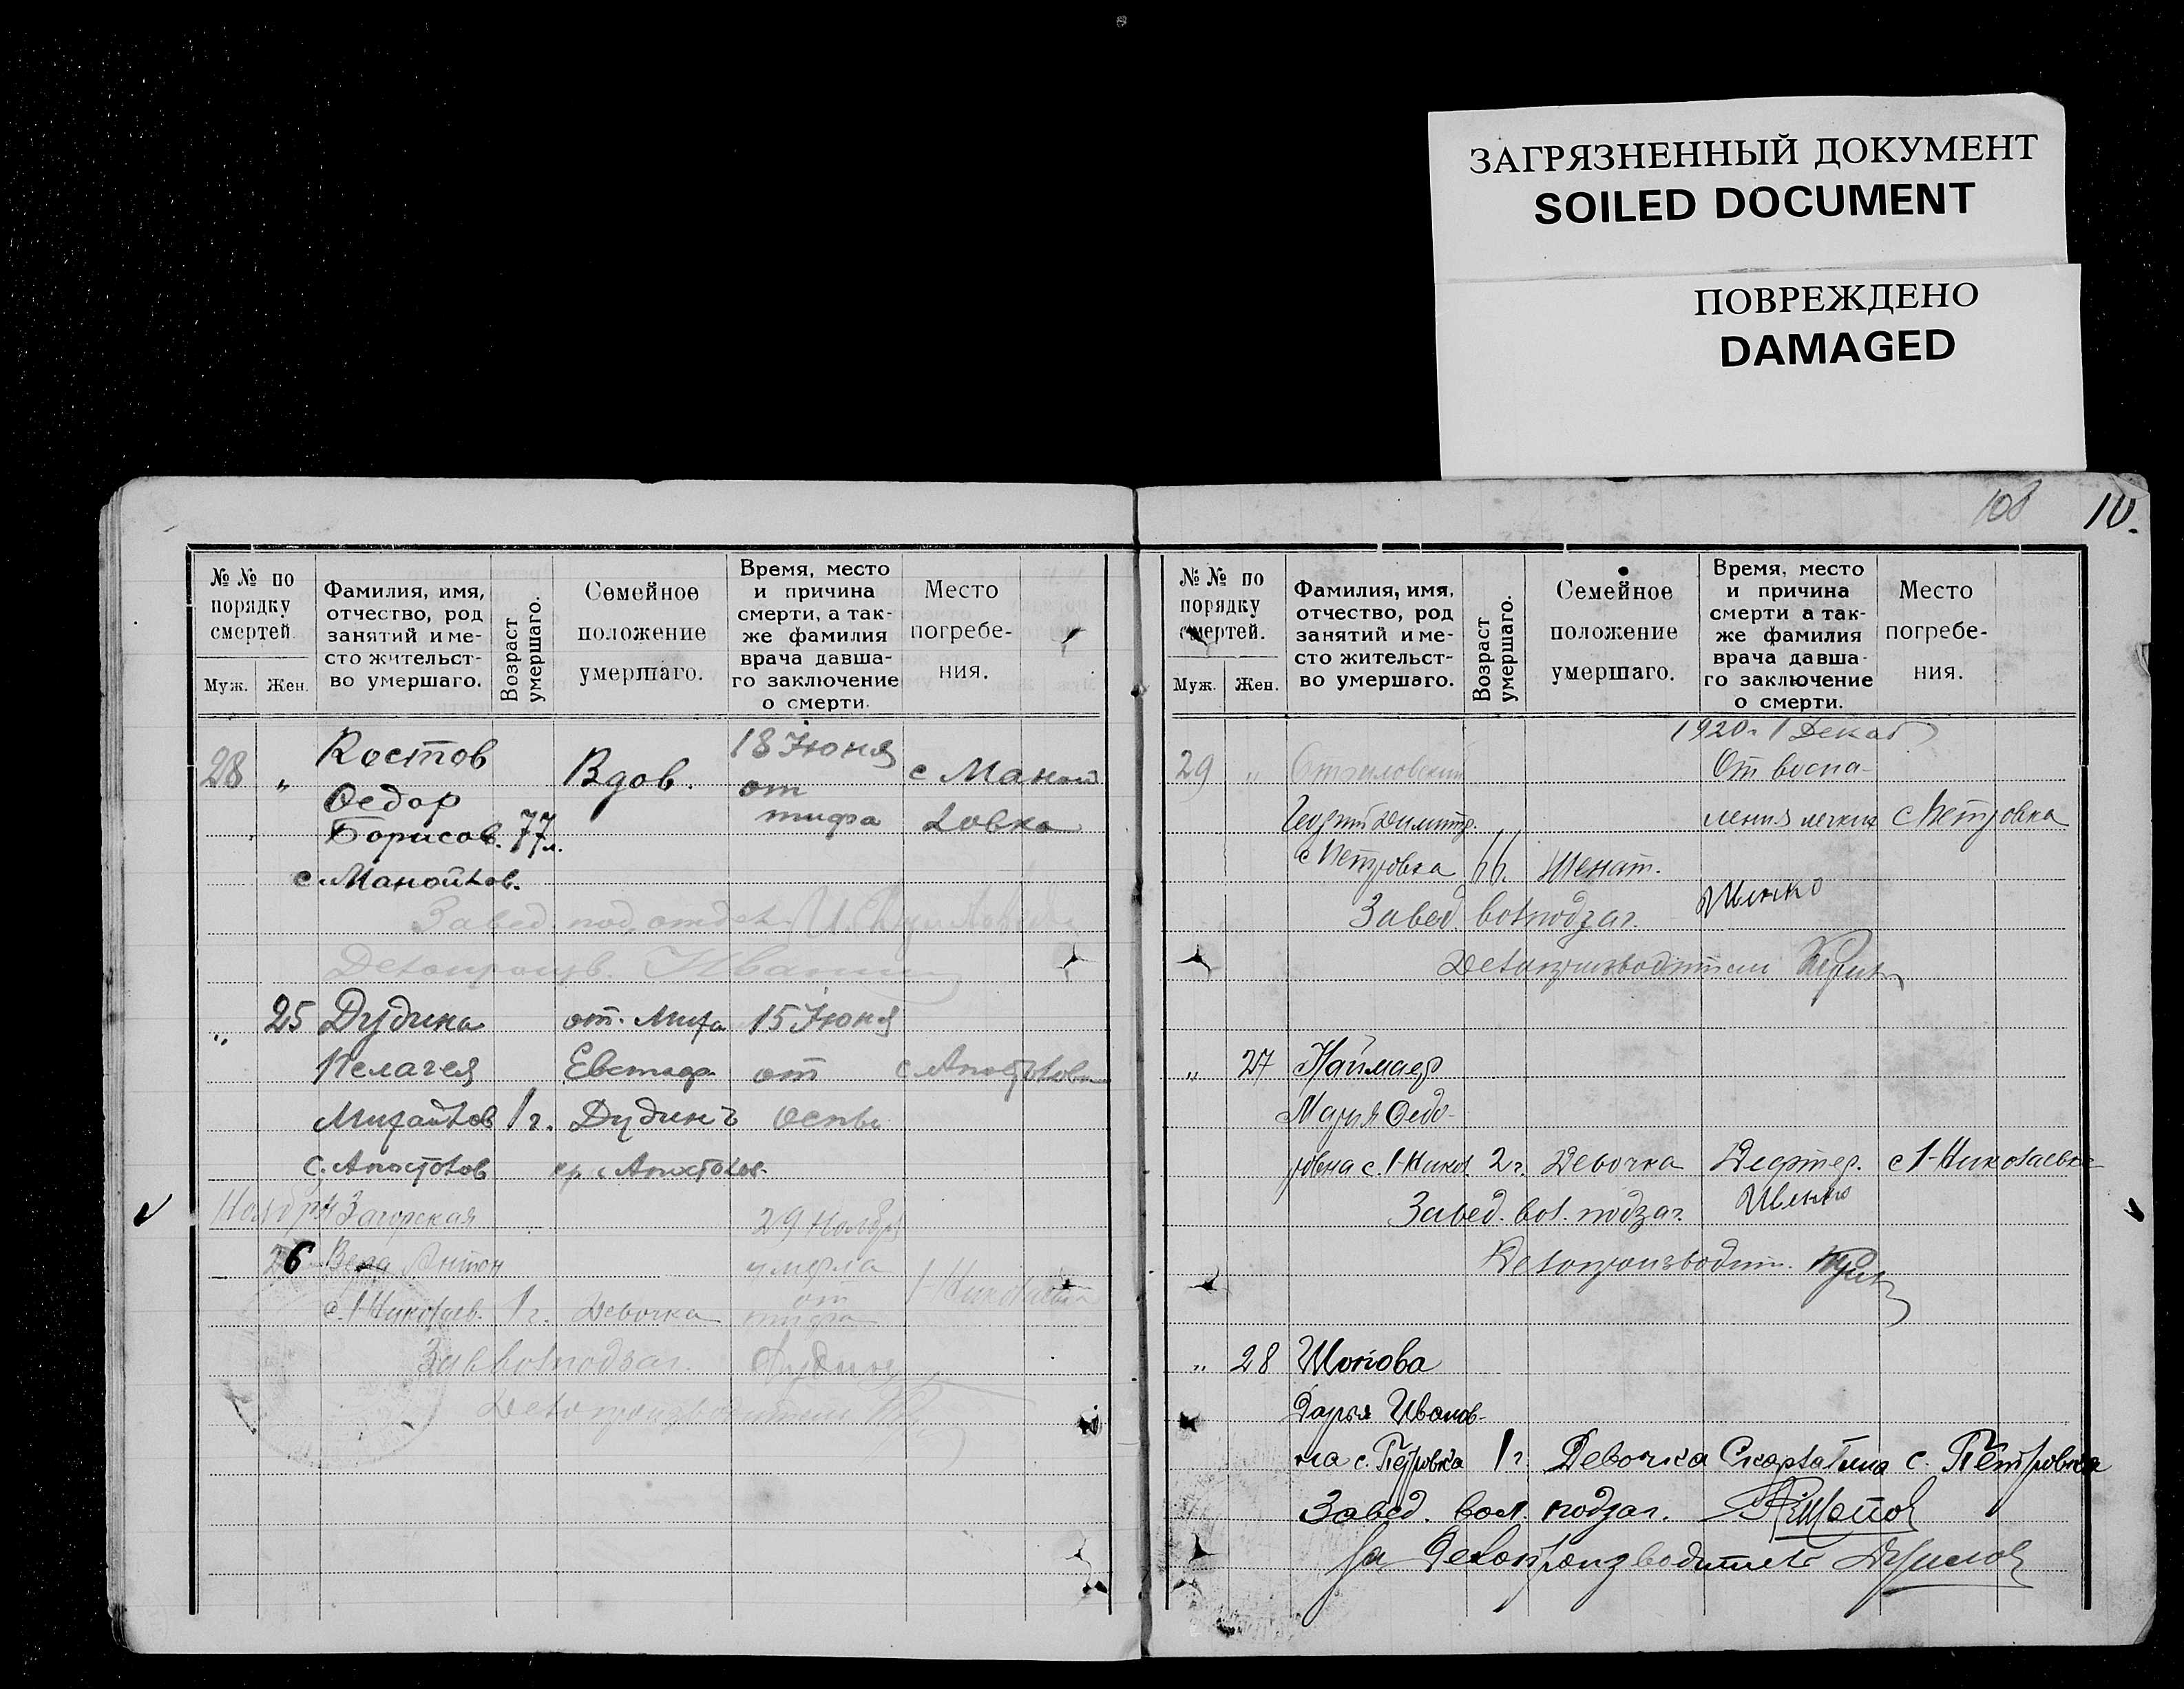 ЗАГРЯЗНЕННЫЙ ДОКУМЕНТ
SOILED DOCUMENT
ПОВРЕЖДЕНО
DAMAGED
№№ по порядку смертей.
Муж. Жен.
Фамилия, имя, отчество, род занятий и место жительство умершаго.
Возраст умершаго.
Семейное положение умершаго.
Время, место и причина смерти, а также фамилия врача давшаго заключение о смерти.
Место погребения.
28 " Костов Вдов. 18 Июня
Федор от с Маной
Борисов. 77 л. тифа ловка
с Манойлов.
Завед. под. отдел.
Делопроизв.
" 25 Дудина от. Миха 15 Июня
Пелагея Евстафа от с Апостолов
Михайлов 1 г. Дудинъ оспы
с. Апостолов кр. с Апостолов.
Ноября Загорская 29 Ноября
26 Вера Антон умерла
с. 1-Николаев. 1 г. Девочка от тифа 1-Николаев
Зав волподзаг.
Делопроизводитель
108 10.
№№ по порядку смертей.
Муж. Жен.
Фамилия, имя, отчество, род занятий и место жительство умершаго.
Возраст умершаго.
Семейное положение умершаго.
Время, место и причина смерти а также фамилия врача давшаго заключение о смерти.
Место погребения.
1920 г 1 Декаб
29 " От воспа-
Георгий Димитр. ления легких с Петровка
с Петровка 66 Женат.
Завед. волподзаг.
Делопроизводитель
" 27 Наймаер
Мария Федо-
ровна с. 1-Никол 2 г. Девочка Дифтер. с 1-Николаевка
Завед. вол. подзаг.
Делопроизводит.
" 28 Шопова
Дарья Иванов-
на с. Петровка 1 г. Девочка Скарлатина с. Петровка
Завед. вол. подзаг.
За Делопроизводитель